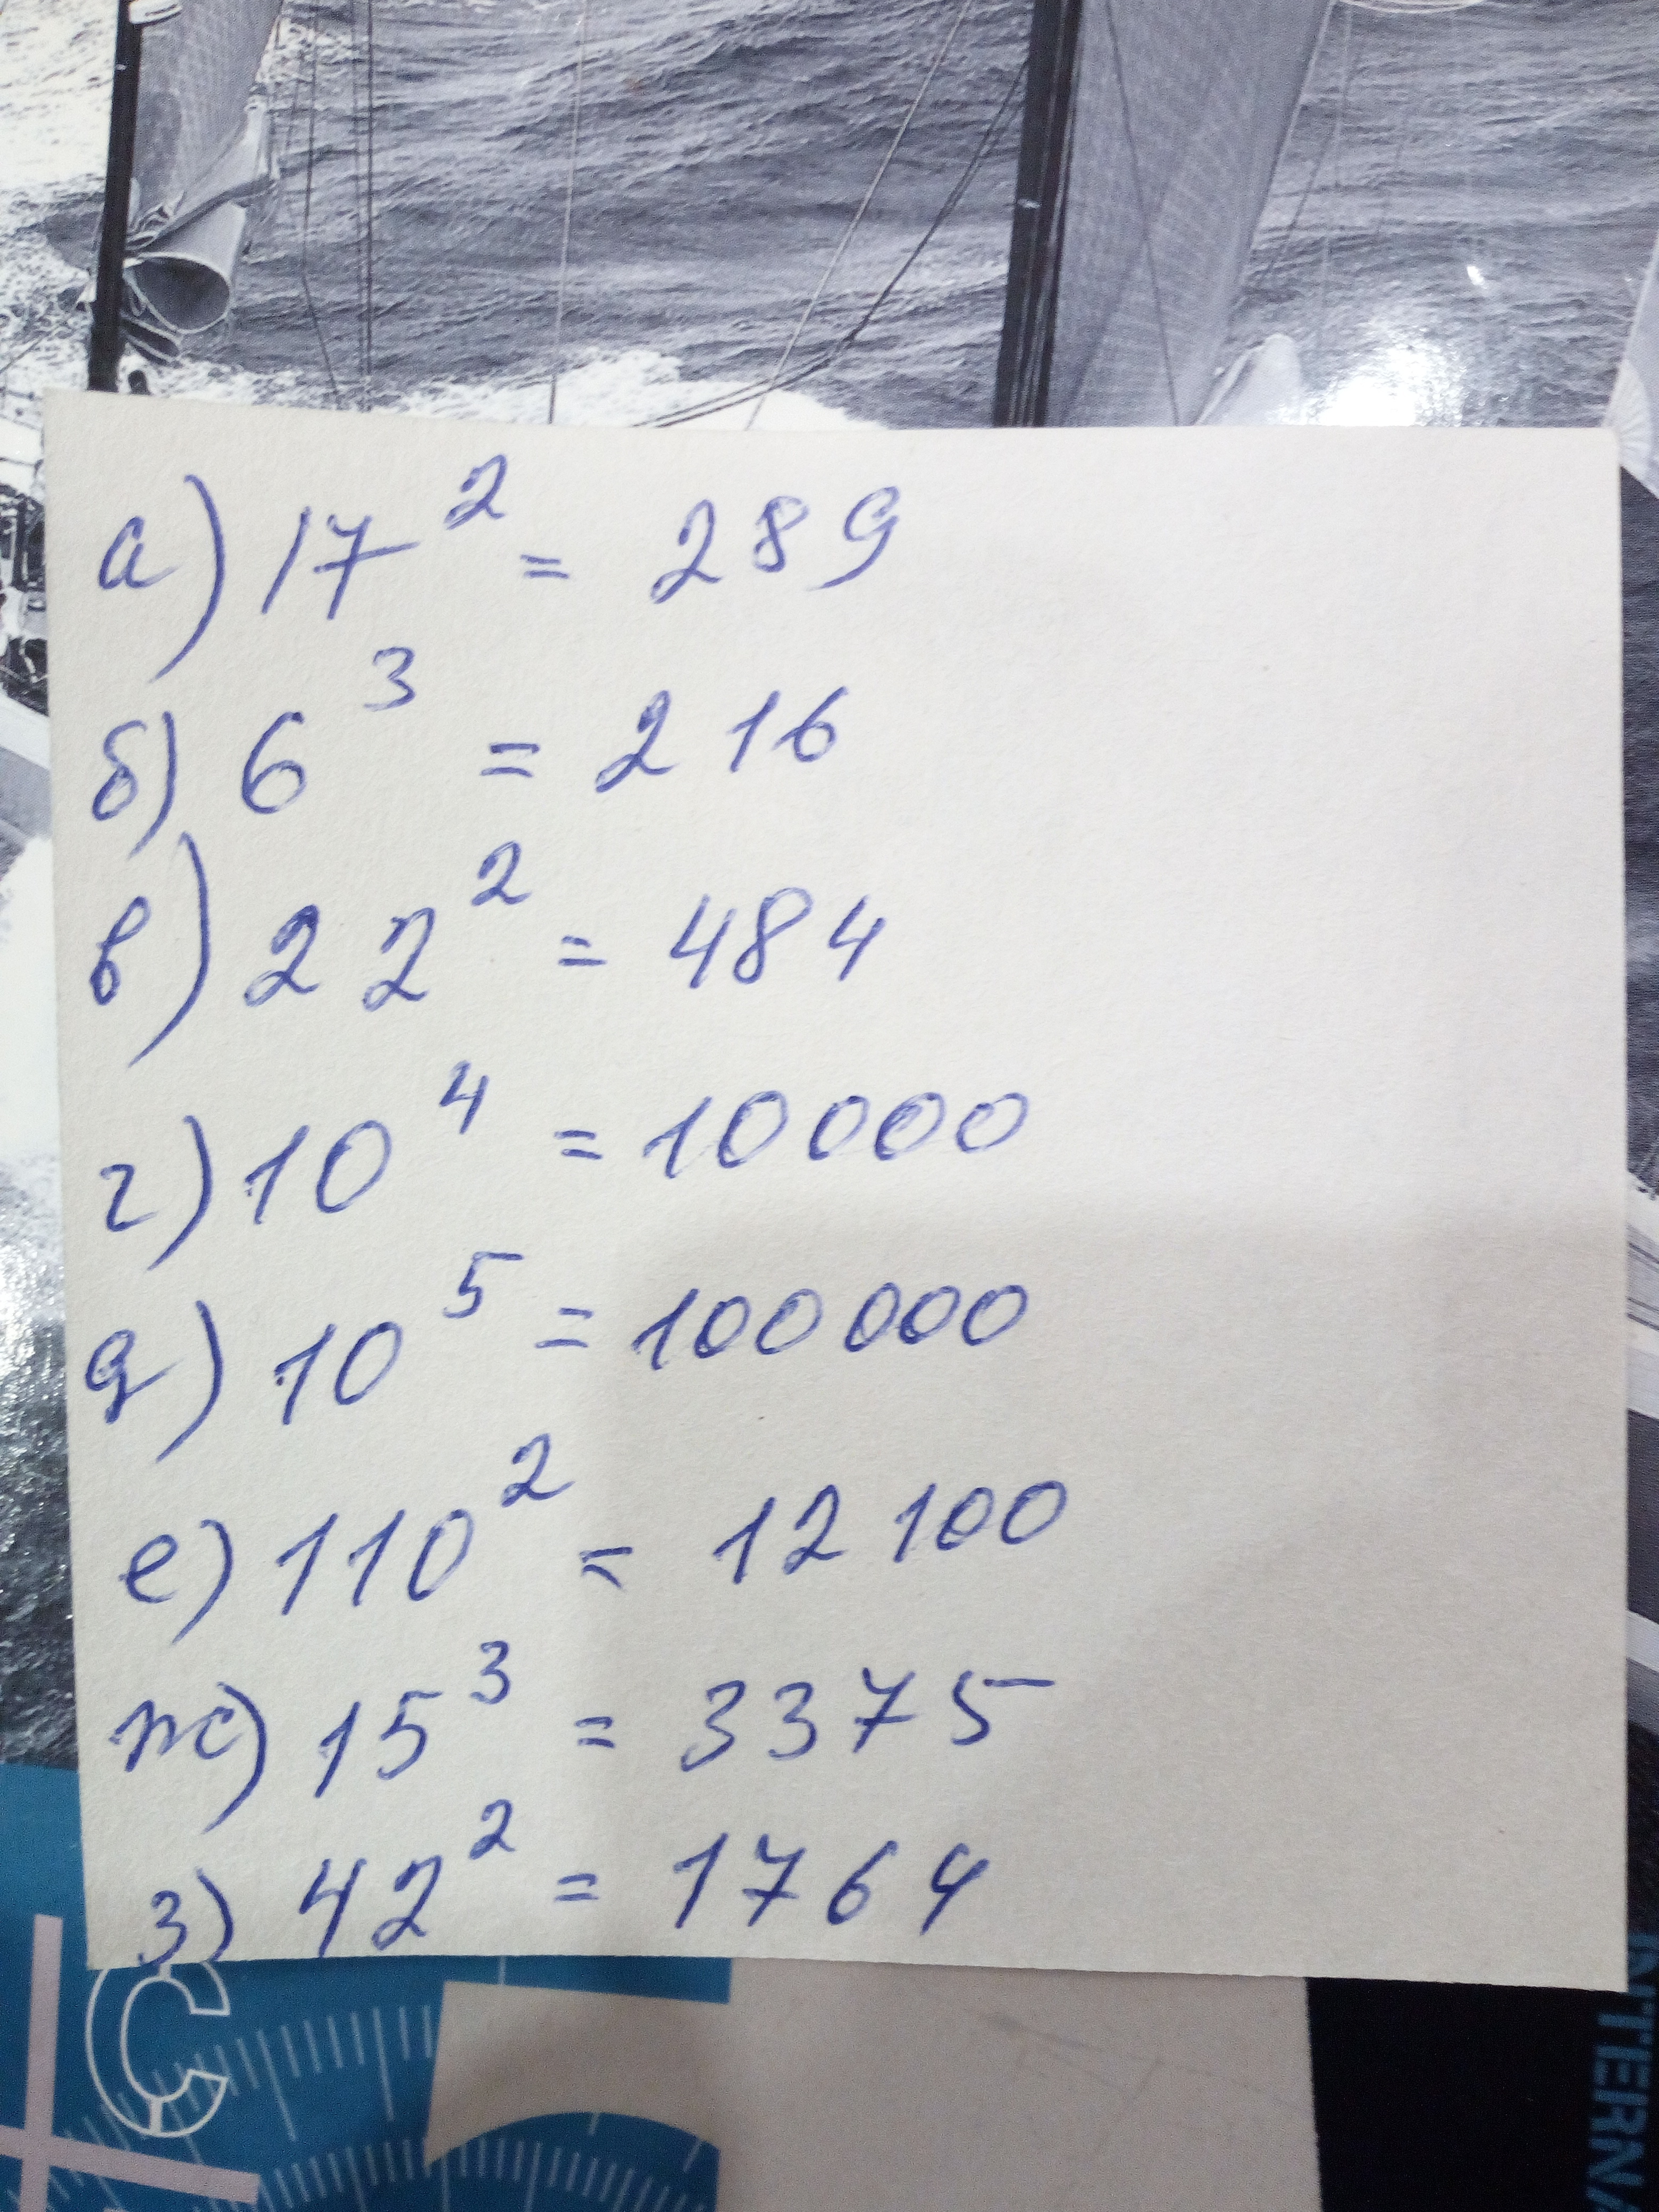 а) 17² = 289
б) 6³ = 216
в) 22² = 484
г) 10⁴ = 10000
д) 10⁵ = 100000
е) 110² = 12100
ж) 15³ = 3375
з) 42² = 1764
C
INTERNA